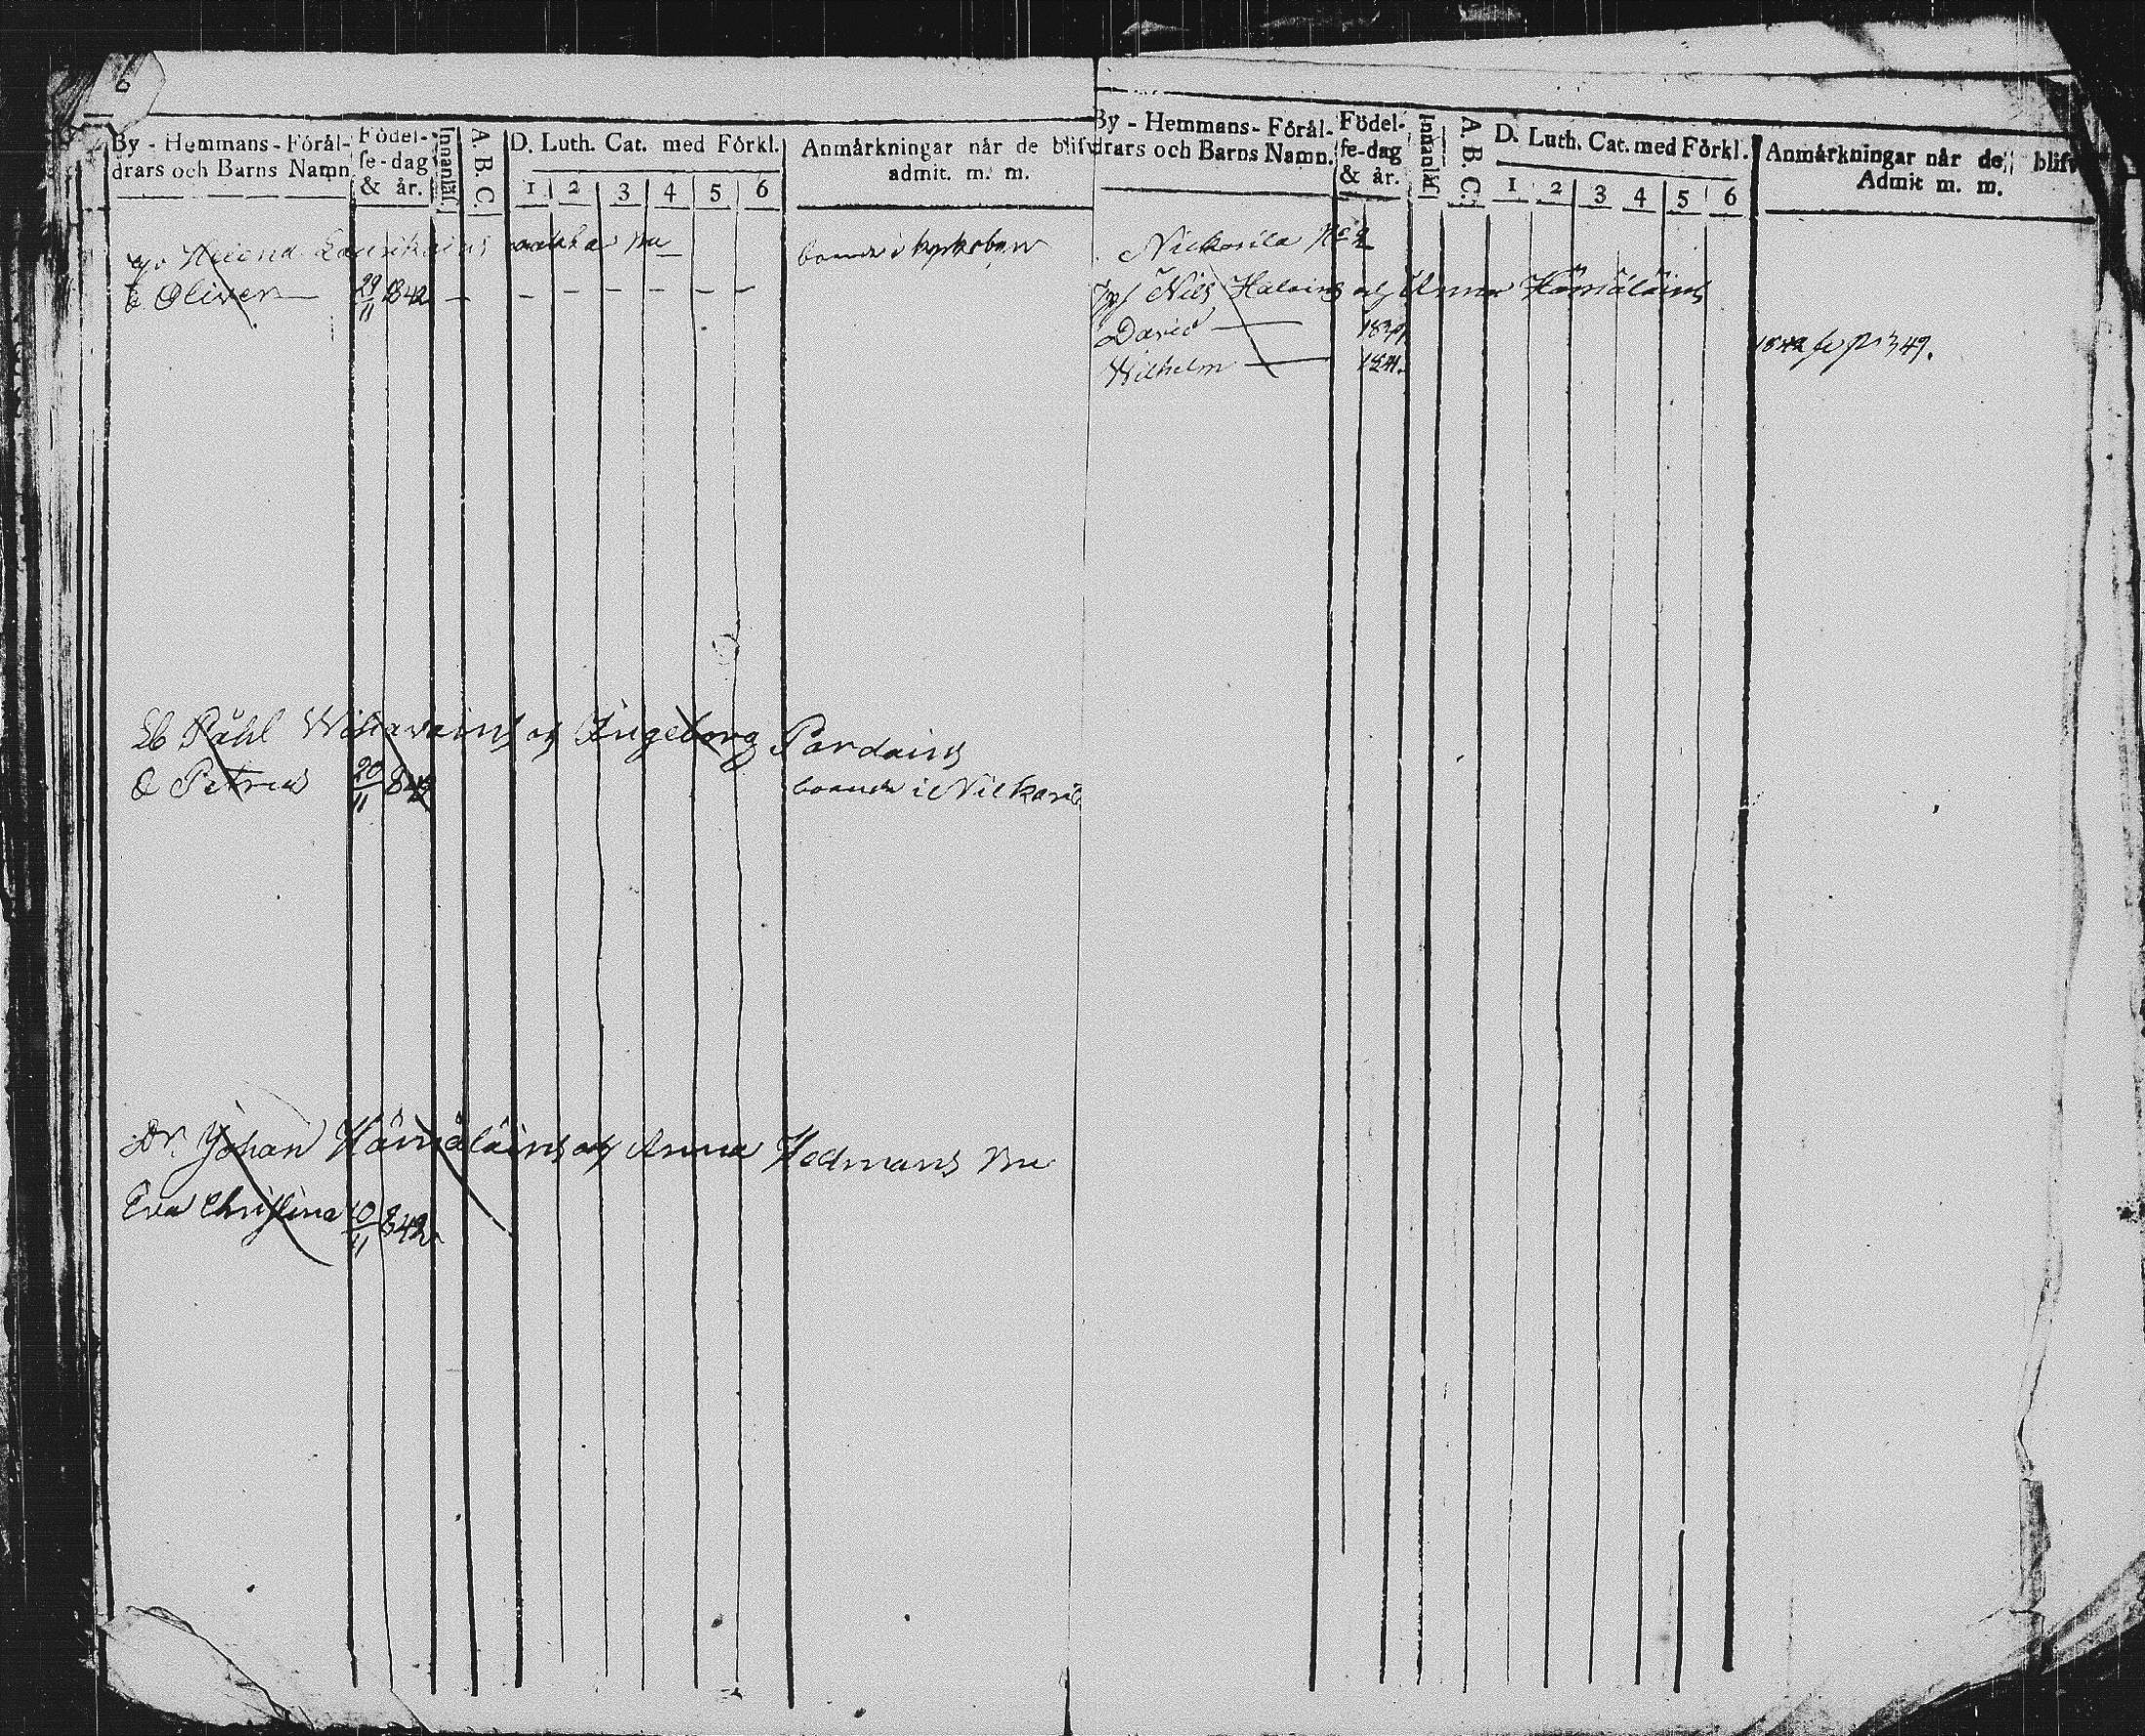 6
By - Hemmans - Förål-
drars och Barns Namn
Födel-
se-dag
& år.
Innanläs.
A. B. C.
D. Luth. Cat. med Förkl.
1 2 3 4 5 6
Anmårkningar når de blifv
admit. m. m.
Oliver 29/11 1842 — — — — — — —
boende i kyrkobyn
Påhl Ingeborg Pardains
Petrus 20/11 842
boende i Nickari
Dr. Johan Hämäläins och Anna Hedmans
Eva Christina 10/11 842
By - Hemmans - Förål-
drars och Barns Namn.
Födel-
se-dag
& år.
Innanläs
A. B. C.
D. Luth. Cat. med Förkl.
1 2 3 4 5 6
Anmårkningar når de blifv
Admit m. m.
Nickarila No 2
Nils Anna Hämäläins
David — 1839.
Wilhelm — 1841.
349.